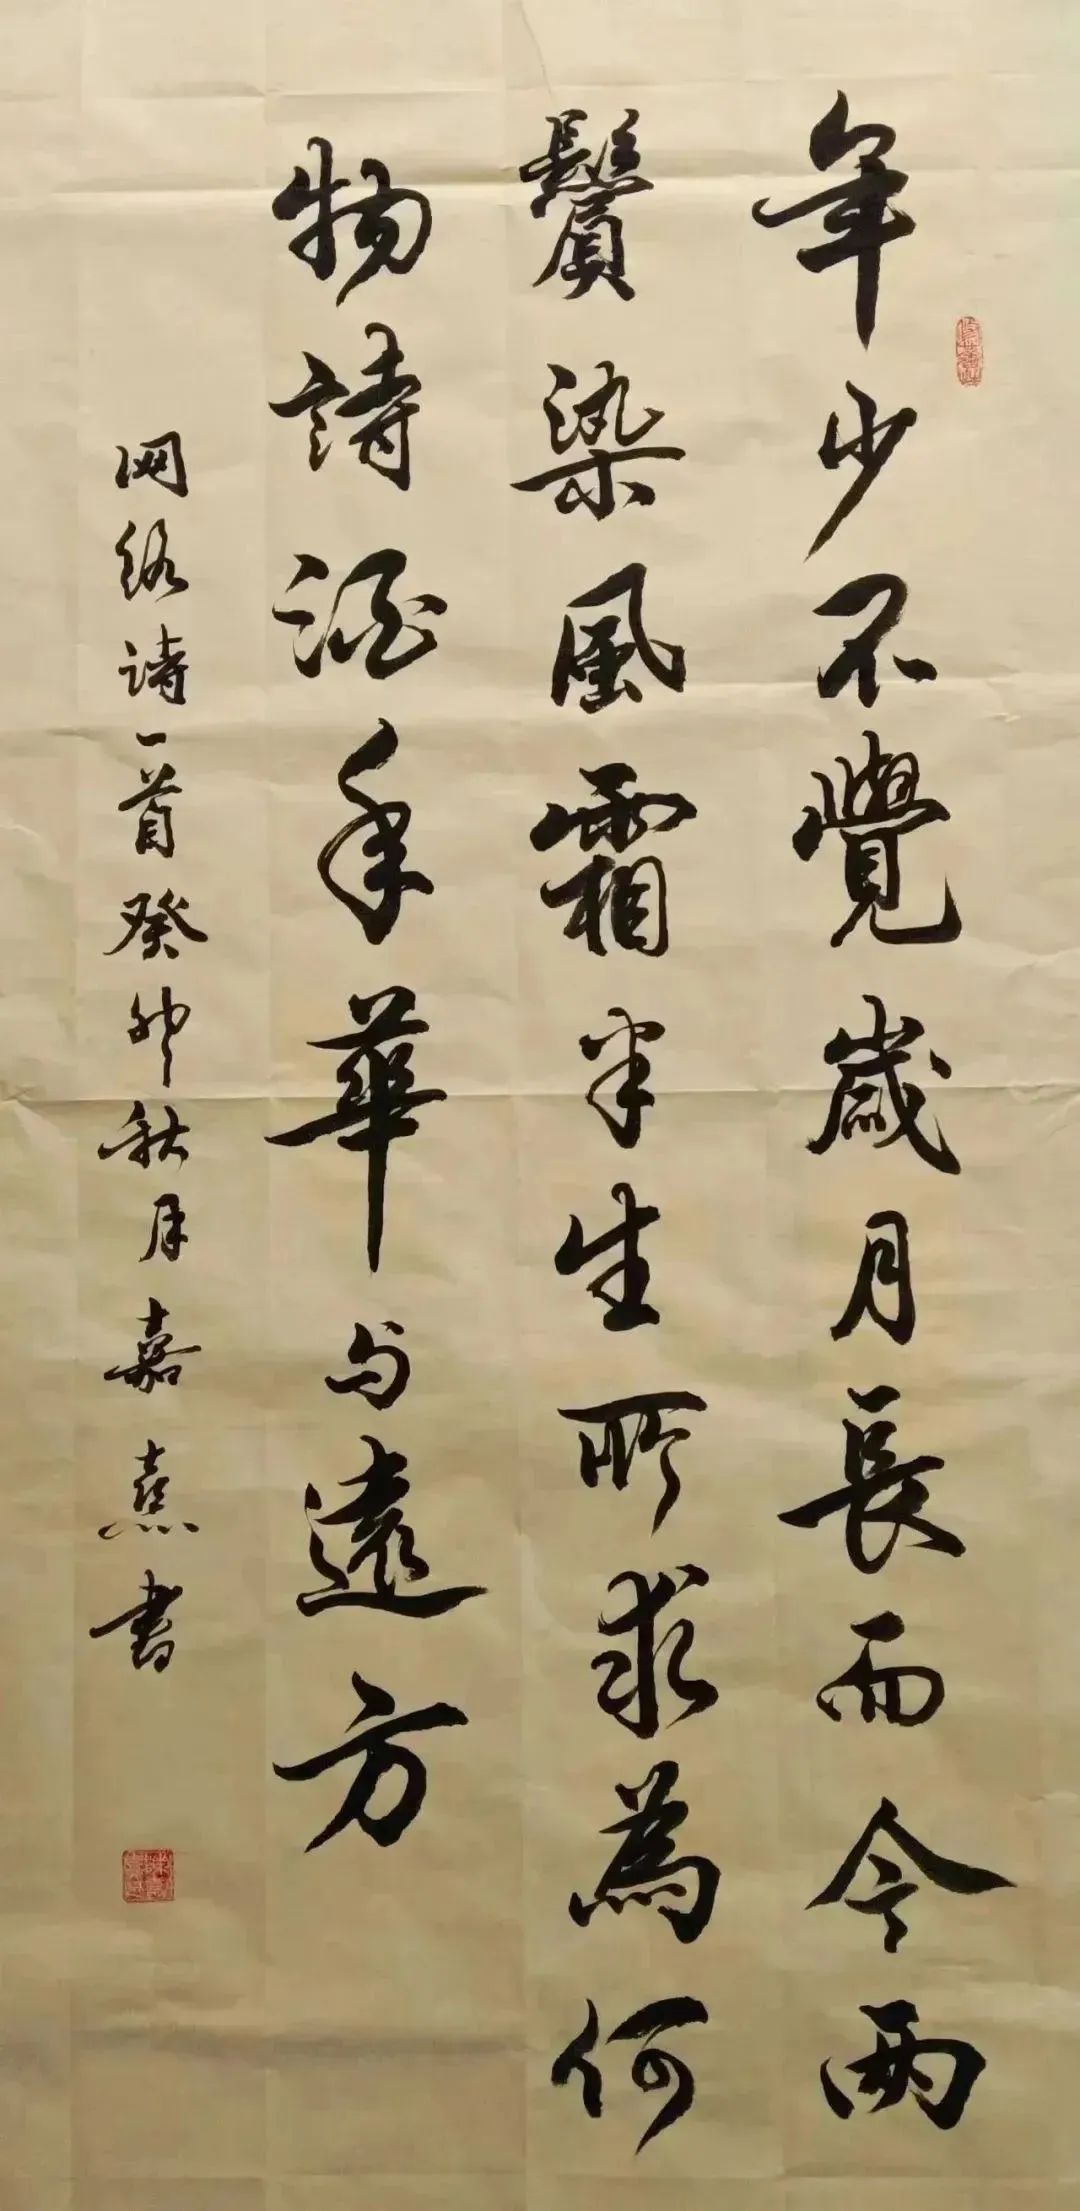 年少不覺歲月長而今兩
鬢染風霜半生所求為何
物詩酒年華与遠方
网络诗一首癸卯秋月嘉熹書